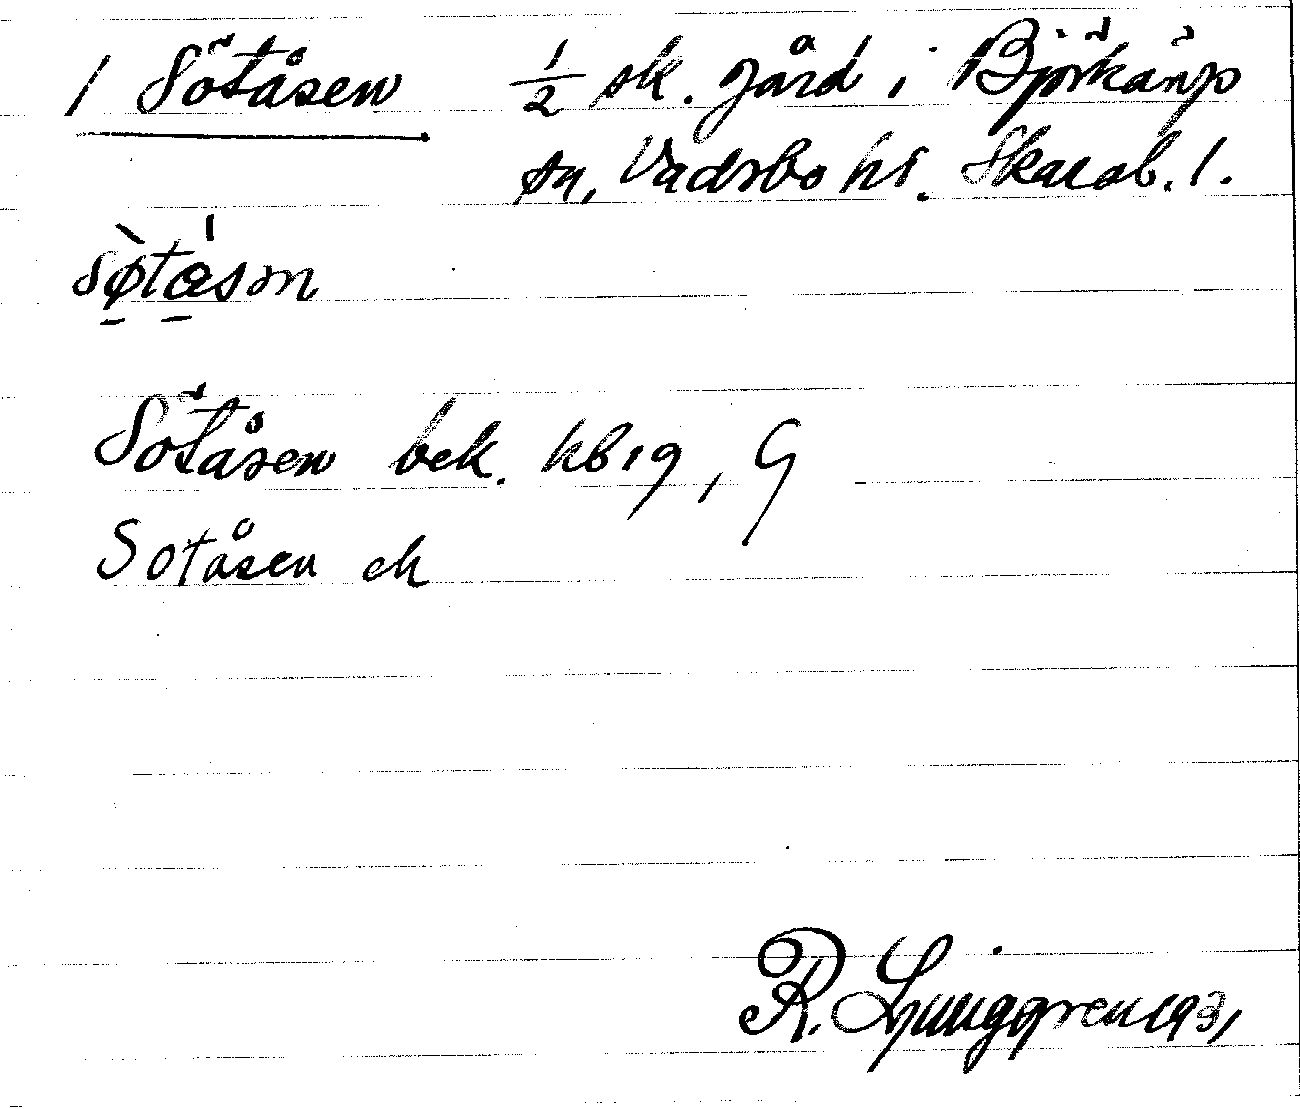 1 Sötåsen ½ sk. gård i Björkängs
sn, Vadsbo hd. Skarab. l.
sø̀tásən
Sötåsen bek. kb19, G
Sotåsen ek
R. Ljunggren 1931